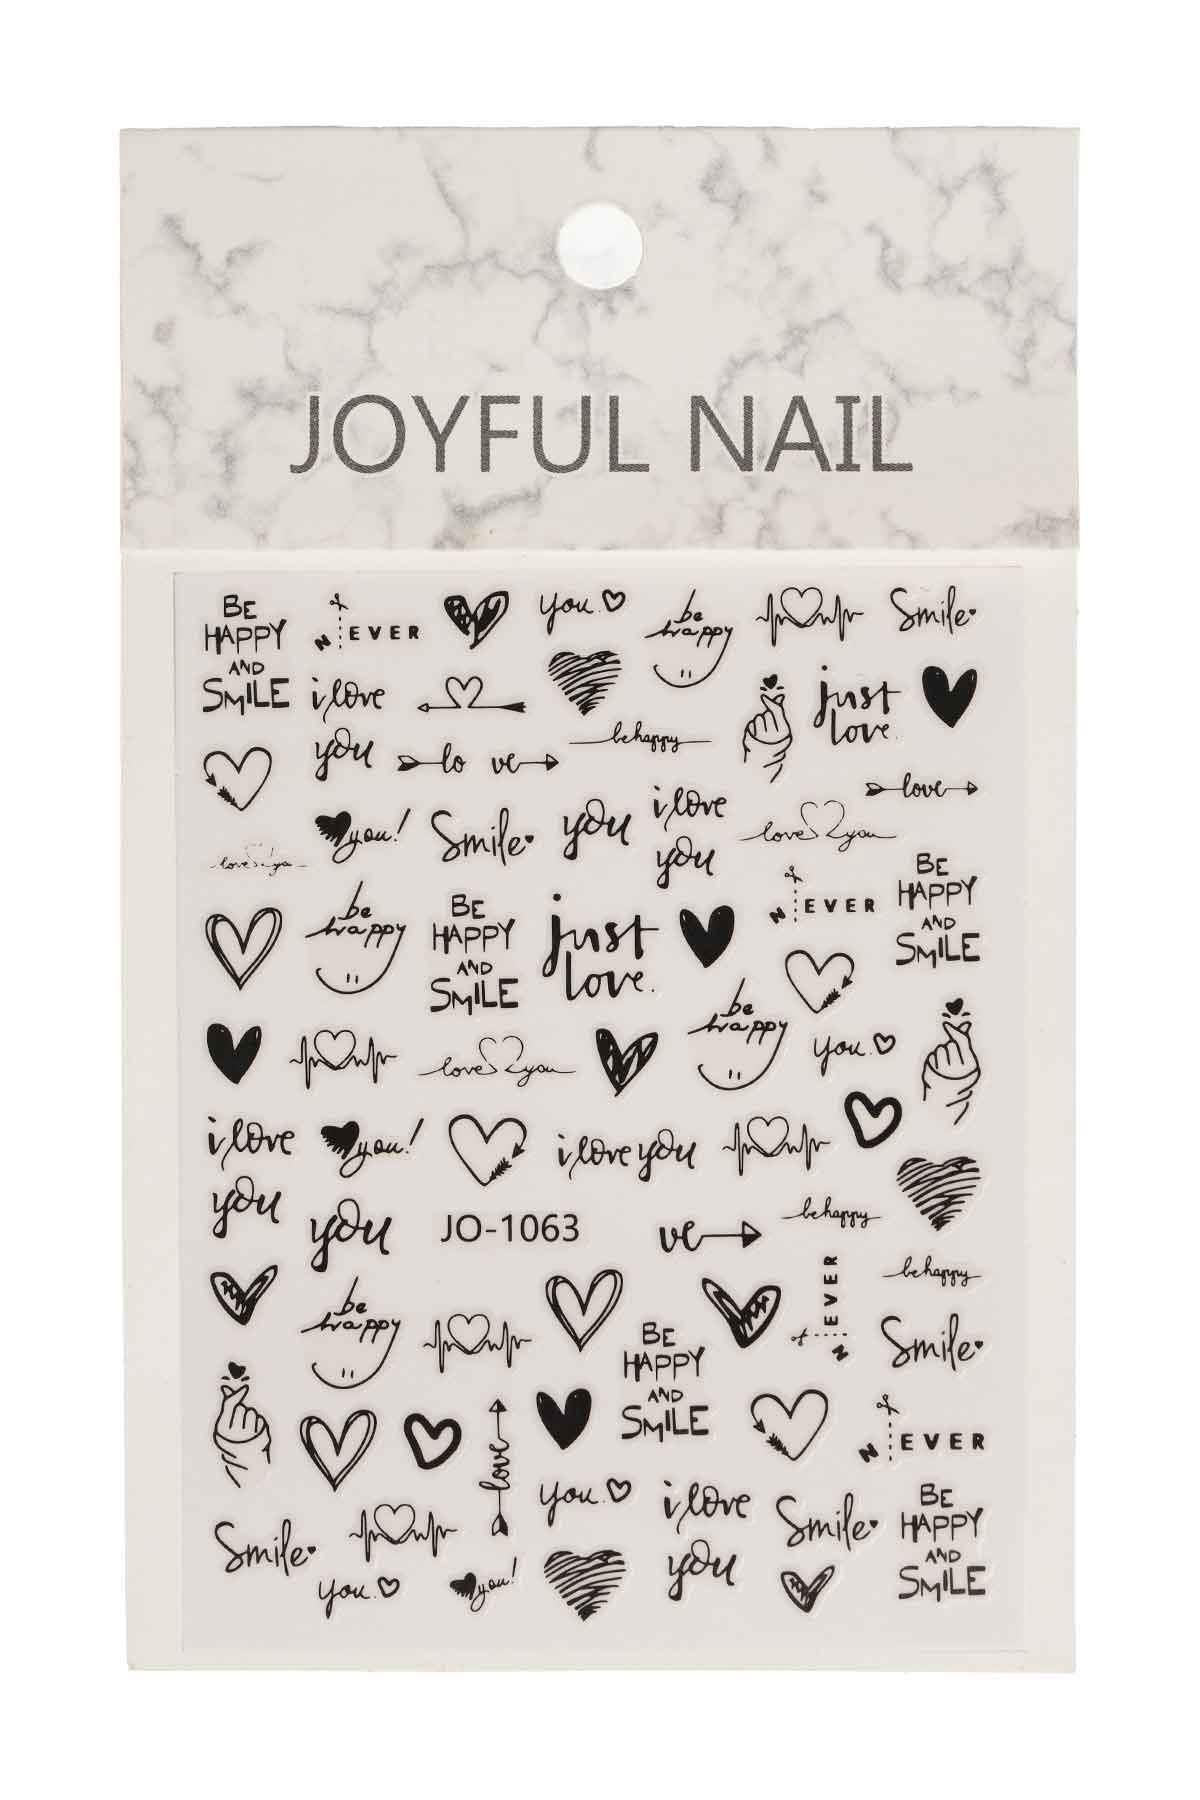 JOYFUL NAIL
BE
HAPPY
AND
SMILE
N EVER
you.
be
happy
Smile
i love
you
just
love.
be happy
lo ve
love
you!
Smile
you
i love
you
love you
love you
BE
HAPPY
AND
SMILE
N EVER
be
happy
BE
HAPPY
AND
SMILE
just
love.
be
happy
you.
love you
i love
you
you!
i love you
you
JO-1063
ve
be happy
be happy
N EVER
be
happy
Smile
BE
HAPPY
AND
SMILE
N EVER
love
you.
i love
you
Smile
BE
HAPPY
AND
SMILE
Smile
you.
you!